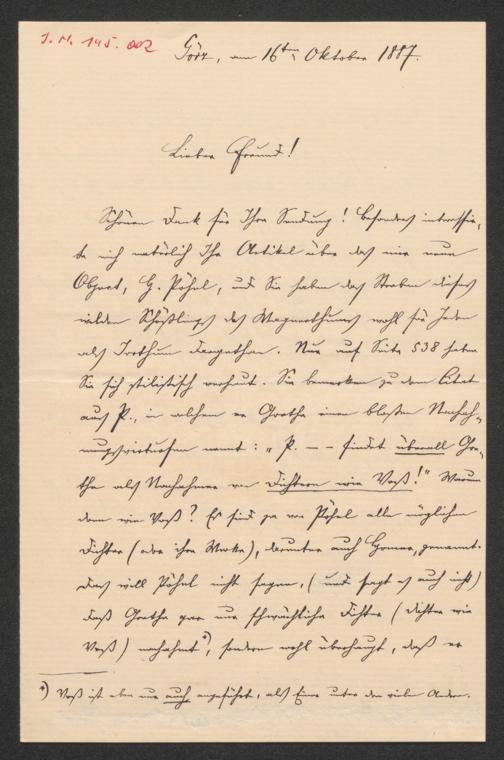 J. N. 145.002
Görz, am 16ten Oktober 1887.
Lieber Freund!
Schönen Dank für Ihre Sendung! Besonders interessir-
te mich natürlich Ihr Artikel über das mir neue
Object, H. Pöhnl, und Sie haben das Streben dieses
wilden Schößlings des Wagnerthums wohl für Jeden
als Irrthum dargethan. Nur auf Seite 538 haben
Sie sich stilistisch verhaut. Sie bemerken zu dem Citat
aus P., in welchem er Goethe einen bloßen Nachah-
mungsvirtuosen nennt: „P. – – findet überall Goe-
the als Nachahmer von Dichtern wie Voß!“ Warum
denn wie Voß? Es sind ja von Pöhnl alle möglichen
Dichter (oder ihre Werke), darunter auch Homer, genannt.
Das will Pöhnl nicht sagen, (und sagt es auch nicht)
daß Goethe gar nur schwächliche Dichter (Dichter wie
Voß) nachahmt*), sondern wohl überhaupt, daß er
*) Voß ist eben nur auch angeführt, als Einer unter den vielen Andern.